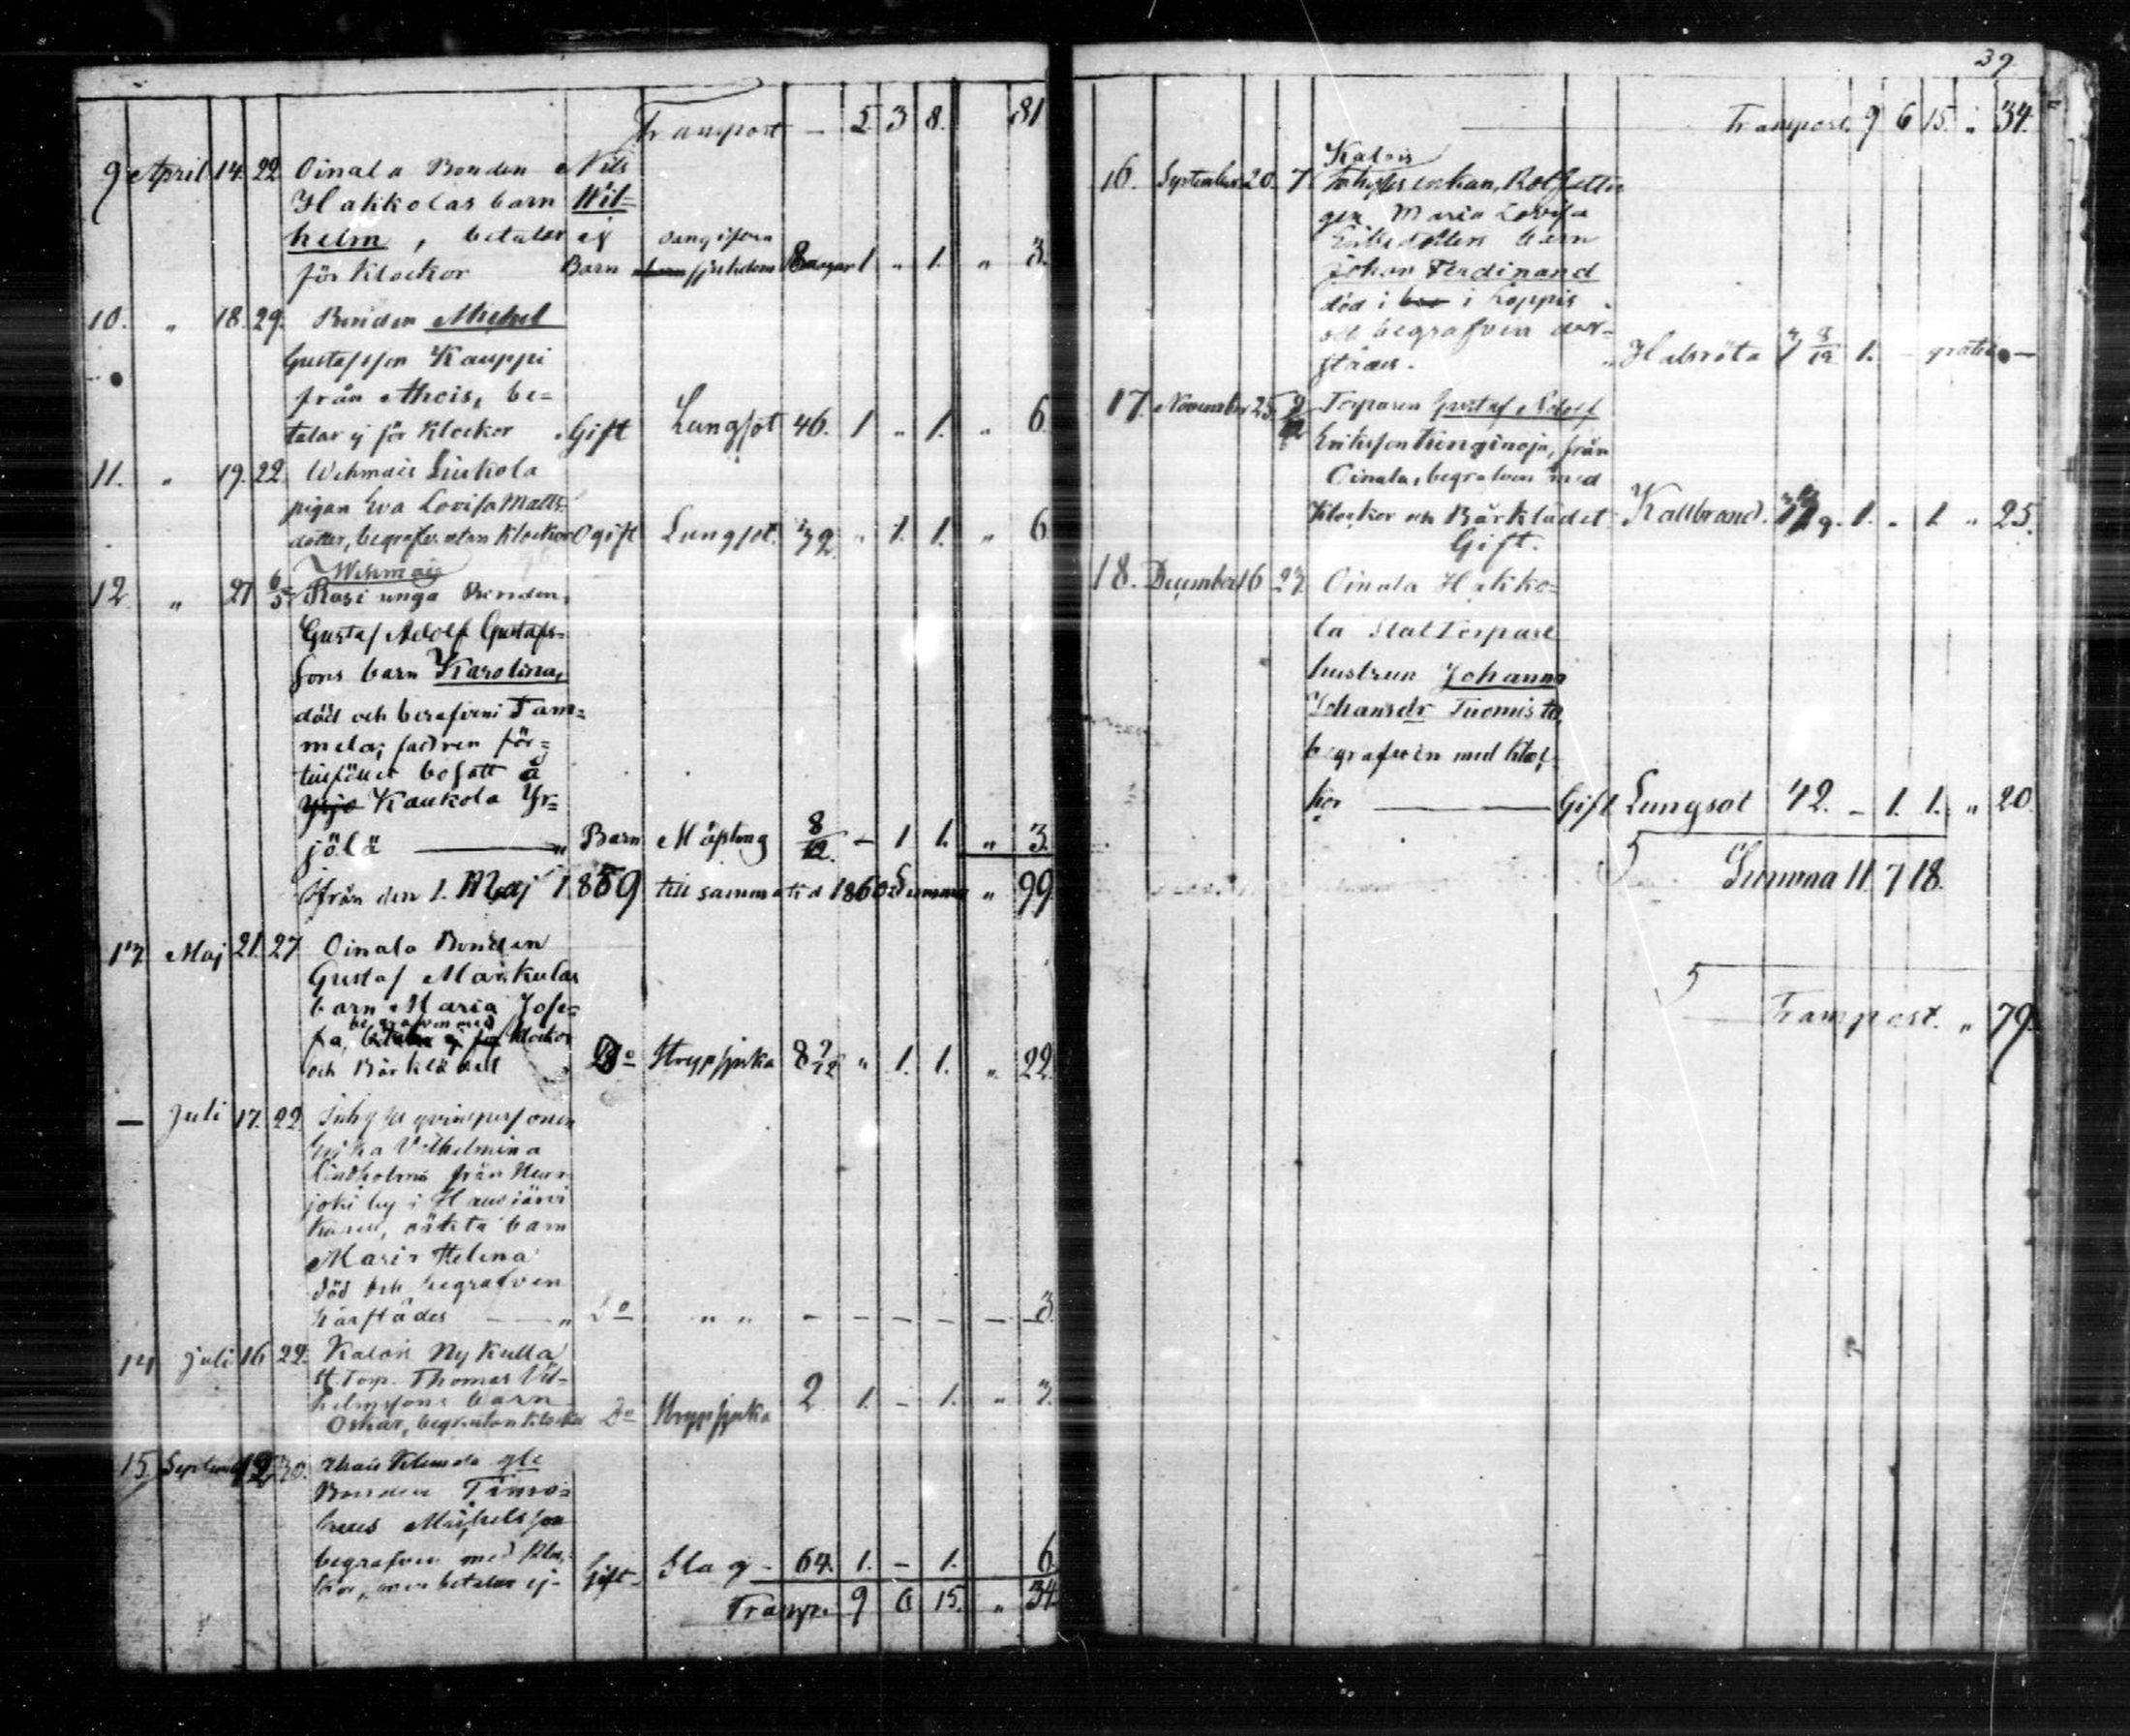 Transport — 5 3 8. 81
9 April 14. 22 Oinala Bonden Nils
Hakkolas barn Wil=
helm, betalar ej
för Klockor Barn sjukdom 8 dagar 1 „ 1. „ 3.
10. „ 18. 29. Bonden Michel
Gustafsson Kauppi
från be=
talar ej för Klockor Gift Lungsot 46. 1 „ 1. „ 6
11. „ 19. 22. Liukola
pigan Eva Lovisa Matts=
dotter, begrafv. utan Klockor Ogift Lungsot. 39 „ 1. 1. „ 6
12. „ 21 6/5 Rasi unga Bonden
Gustaf Adolf Gustafs=
sons barn Karolina,
död och Tam=
mela; fadren för=
bosatt å
Kaukola Yr=
jölä „ Barn Mäßling 8/12. — 1 1. „ 3.
från den 1. Maj 1859 till samma tid 1860 Summa „ 99
13 Maj 21. 27. Oinala Bonden
Gustaf Markulas
barn Maria Jose=
fa, begrafven med Klockor
och Bårklädet Do Strypsjuka 8 7/12 „ 1. 1. „ 22.
— Juli 17. 22. Inhyses qvinspersonen
Vilhelmina
Lindholms från
joki by i Hausjärvi
oäkta barn
Maria Helena
död och begrafven
härstädes — „ Do „ „ — — — — — 3.
14 Juli 16 22. Nykulla
St Torp. Thomas Vil=
helmssons barn
Oskar, begr. utan Klockor Do Strypsjuka 2 1. — 1. „ 3.
15. September 12 30. gle
Bonden Timo=
theus Michelsson
begrafven med Kloc=
kor, men betalar ej Gift Slag — 64. 1. — 1. 6
Transp. 9 6 15. „ 34
39
Transport. 9 6 15. „ 34.
16. September 20. 7 Inhyses enkan, Rotfattig
gen Maria Lovisa
Eriksdotters barn
Johan Ferdinand
död i i Loppis
och begrafven der=
städes. „ Halsröta 1. — gratis —
17. November 25. Torparen Gustaf Adolf
Eriksson från
Oinala, begrafven med
Klockor och Bårklädet Kallbrand. 1. „ 1. „ 25.
Gift.
18. December 16 23 Oinala Hakko=
la Stattorpare
hustrun Johanna
Johansdr Tuomisto
begrafven med kloc=
kor — Gift Lungsot 42. — 1. 1. „ 20.
Summa 11. 7 18.
Transport. „ 79.